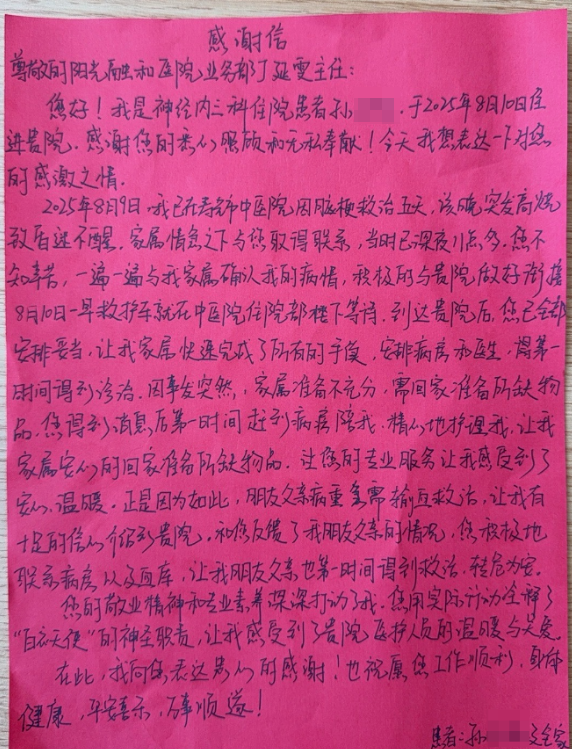 感谢信
尊敬的阳光融和医院业务部丁延雯主任：
您好！我是神经内三科住院患者孙 于2025年8月10日住
进贵院，感谢您的悉心照顾和无私奉献！今天我想表达一下对您
的感激之情．
2025年8月9日，我已在寿光市中医院因脑梗救治五天，该晚突发高烧
致昏迷不醒．家属情急之下与您取得联系，当时已深夜11点多，您不
知辛苦，一遍一遍与我家属确认我的病情，积极的与贵院做好衔接
8月10日一早救护车就在中医院住院部楼下等待．到达贵院后，您已全部
安排妥当，让我家属快速完成了所有的手续，安排病房和医生，得第一
时间得到诊治．因事发突然，家属准备不充分，需回家准备所缺物
品，您得到消息后第一时间赶到病房陪我，精心地护理我，让我
家属安心的回家准备所缺物品．让您的专业服务让我感受到了
安心，温暖．正是因为如此，朋友父亲病重急需输血救治，让我有
十足的信心介绍到贵院，和您反馈了我朋友父亲的情况，您积极地
联系病房以及血库，让我朋友父亲也第一时间得到救治，转危为安．
您的敬业精神和专业素养深深打动了我．您用实际行动全释了
“白衣天使”的神圣职责，让我感受到了贵院医护人员的温暖与关爱．
在此，我向您表达衷心的感谢！也祝愿您工作顺利，身体
健康，平安喜乐，万事顺遂！
患者：孙 全家